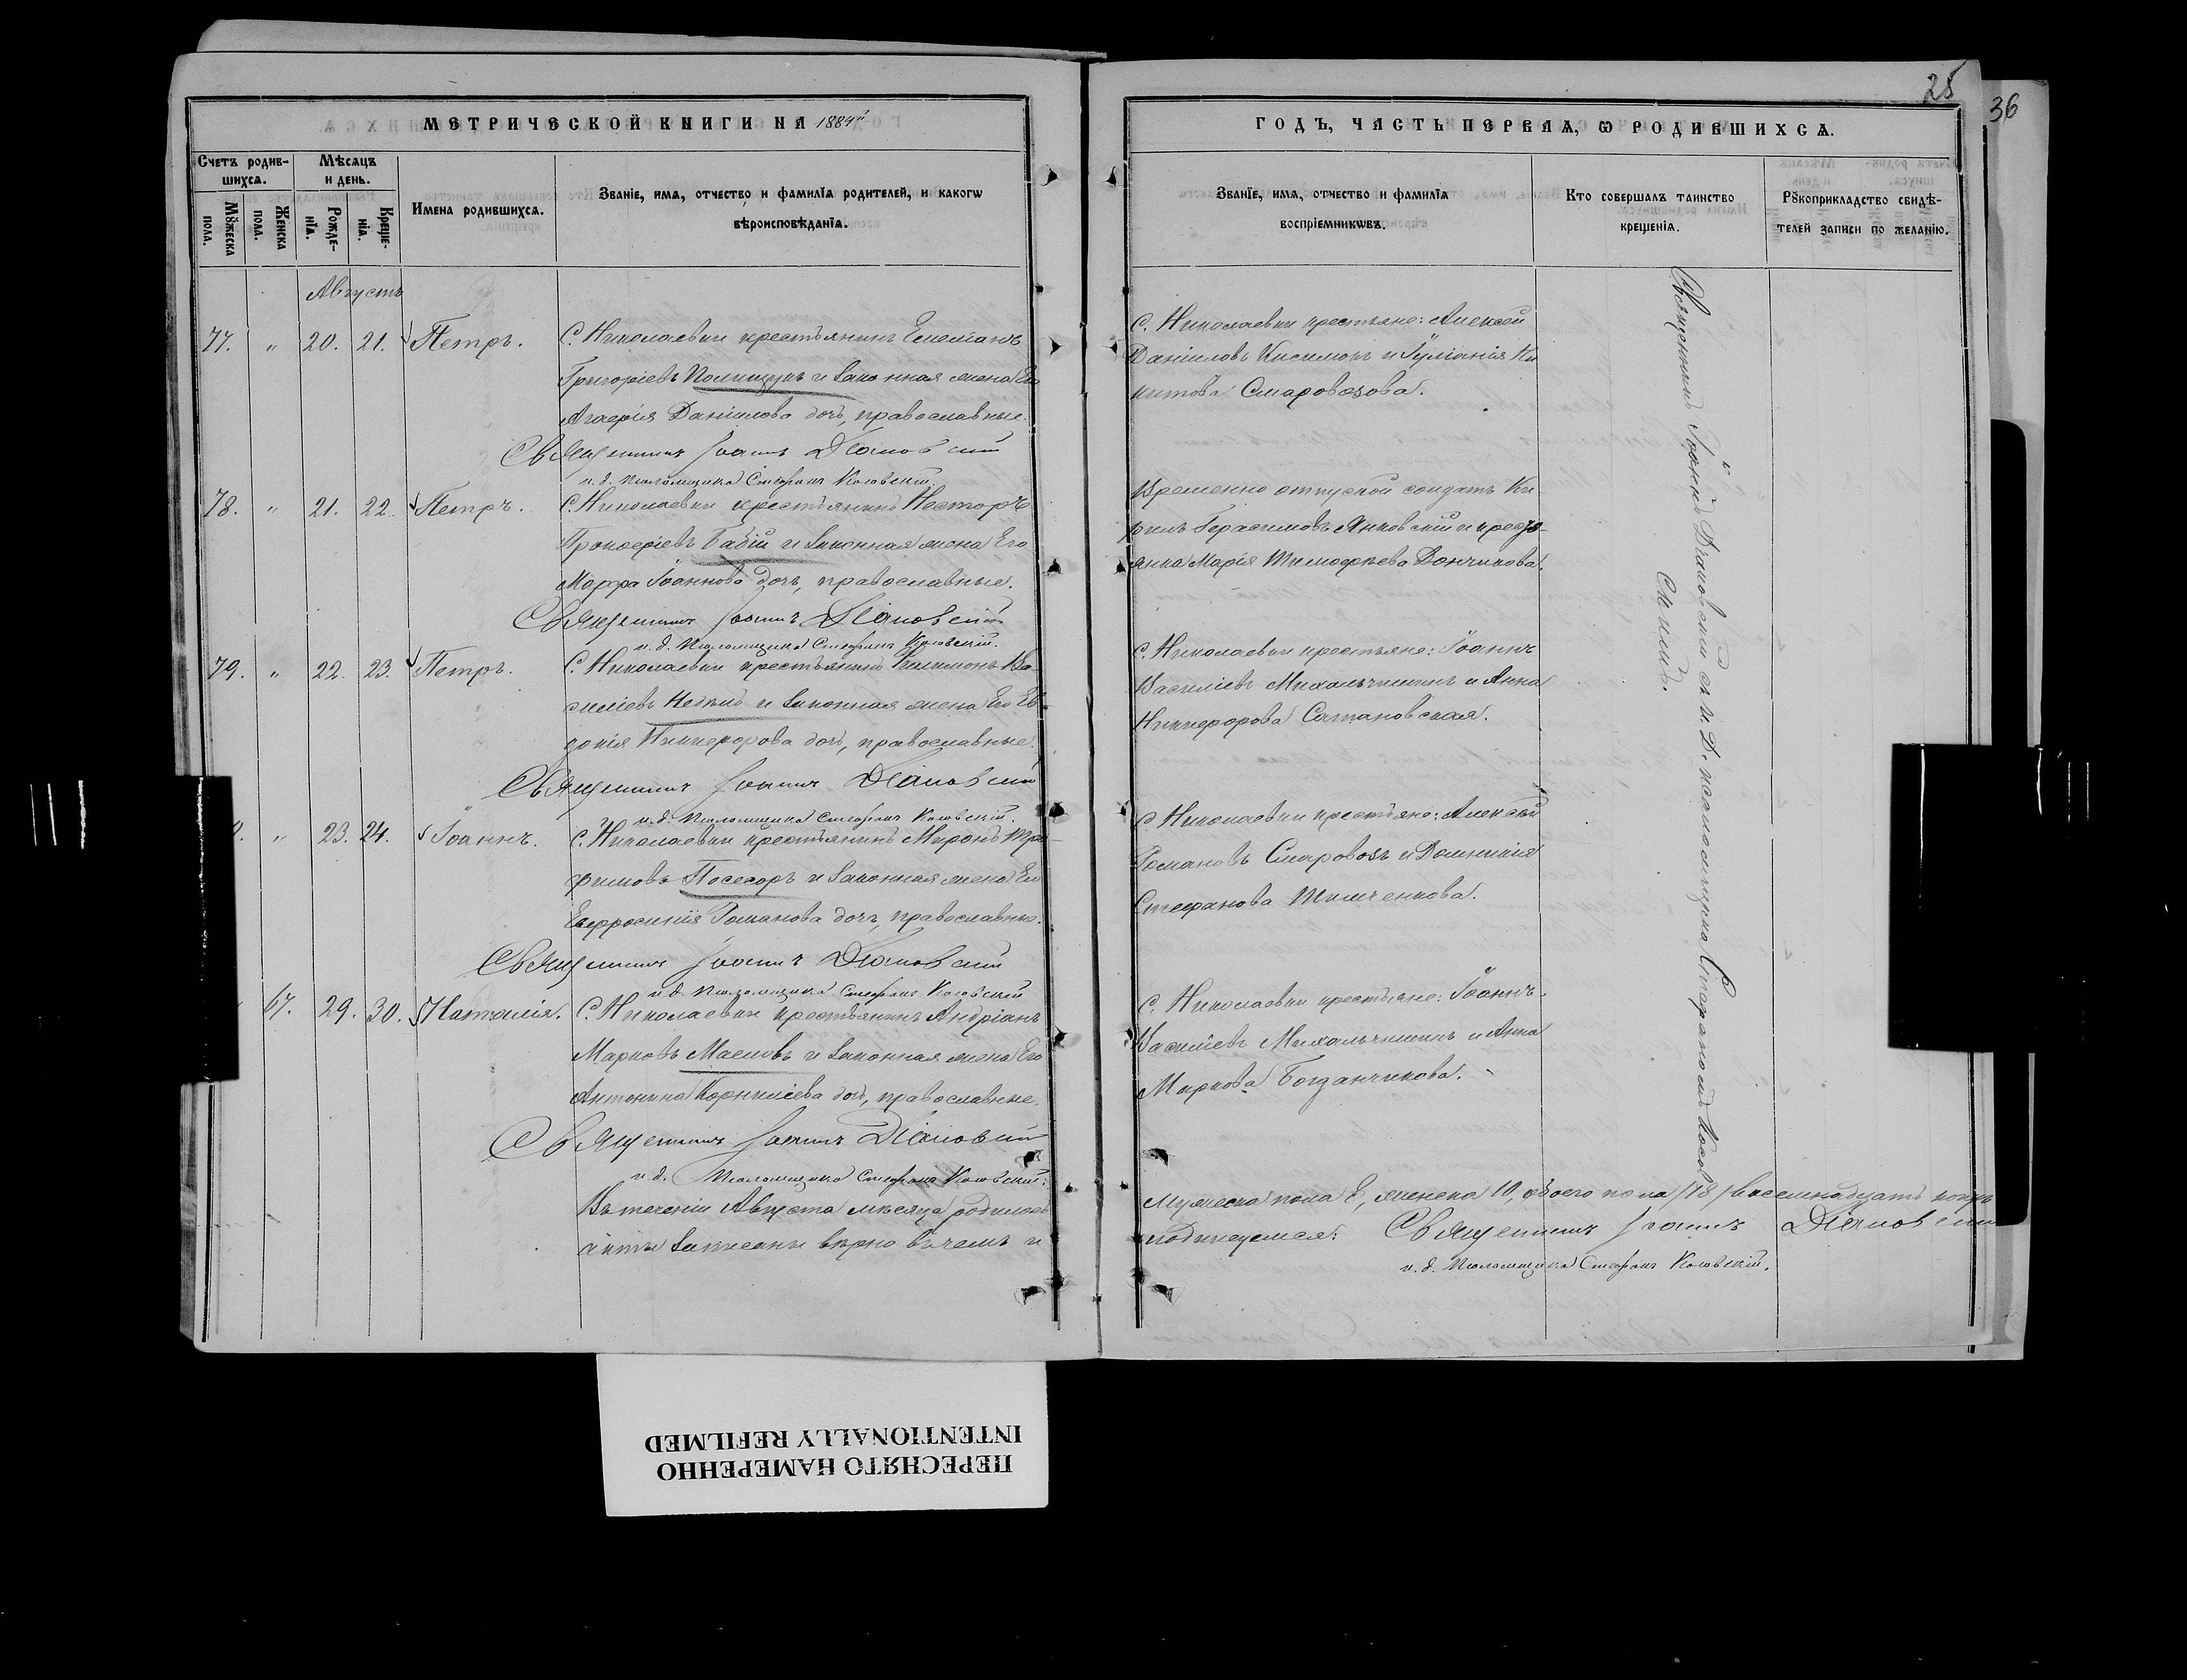 28
36
МЕТРИЧЕСКОЙ КНИГИ НА 1884й
ГОДЪ, ЧАСТЬ ПЕРВАЯ, Ѡ РОДИВШИХСЯ.
Счетъ родив-
шихся.
Мѣсяцъ
и день.
Мꙋжеска
пола.
Женска
пола.
Рожде-
нїя.
Креще-
нїя.
Имена родившихся.
Званїе, имя, отчество и фамилїя родителей, и какогѡ
вѣроисповѣданїя.
Званїе, имя, отчество и фамилїя
воспрїемникѡвъ.
Кто совершалъ таинство
крещенїя.
Рꙋкоприкладство свидѣ-
телей записи по желанїю.
Августъ
77. " 20. 21. Петръ.
С. Николаевки крестьянинъ Емеліанъ
Григоріевъ Полищукъ и законная жена Его
Агафія Даніилова дочь, православные.
Священникъ Іоаннъ Діановскій
и. д. Псаломщика Стефанъ Косовскій.
С. Николаевки крестьяне: Алексей
Даніиловъ и Іуліанія Ни
китова Старовозова.
78. " 21. 22. Петръ.
С. Николаевки крестьянинъ Несторъ
Прокофіевъ Бабій и законная жена Его
Марфа Іоаннова дочь, православные.
Священникъ Іоаннъ Діановскій
и. д. Псаломщика Стефанъ Косовскій.
Временно отпускной солдатъ Ки
рилъ Герасимовъ Янковскій и крестья-
янка Марія Тимофѣева Дончикова.
79. " 22. 23. Петръ.
С. Николаевки крестьянинъ Филимонъ Ва-
силіевъ и законная жена Его Ев-
докія Никифорова дочь, православные.
Священникъ Іоаннъ Діановскій
и. д. Псаломщика Стефанъ Косовскій.
С. Николаевки крестьяне: Іоаннъ
Василіевъ Михальчишинъ и Анна
Никифорова Сатановская.
" 23. 24. Іоаннъ.
С. Николаевки крестьянинъ Миронъ Тро-
фимовъ Посесоръ и законная жена Его
Евфросинія Романова дочь, православные.
Священникъ Іоаннъ Діановскій
и. д. Псаломщика Стефанъ Косовскій
С. Николаевки крестьяне: Алексѣй
Романовъ Старовозъ и Домникія
Стефанова Тимченкова.
67. 29. 30. Наталія.
С. Николаевки крестьянинъ Андріанъ
Марковъ Масловъ и законная жена Его
Антонина Корниліева дочь, православные.
Священникъ Іоаннъ Діановскій
и. д. Псаломщика Стефанъ Косовскій.
С. Николаевки крестьяне: Іоаннъ
Василіевъ Михальчишинъ и Анна
Маркова Богданчикова.
Священникъ Іоаннъ Діановскій съ и. д. псаломщика Стефаномъ Косов
скимъ.
Въ теченіи Августа мѣсяца родилось
акты записаны вѣрно въ чемъ и
Мужеска пола 8, женска 10, обоего пола /18/ восемнадцать
подписуемся: Священникъ Іоаннъ Діановскій
и. д. Псаломщика Стефанъ Косовскій.
ПЕРЕСНЯТО НАМЕРЕННО
INTENTIONALLY REFILMED